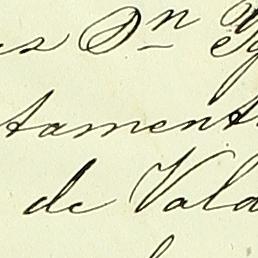 es Dn
tament
de Vala